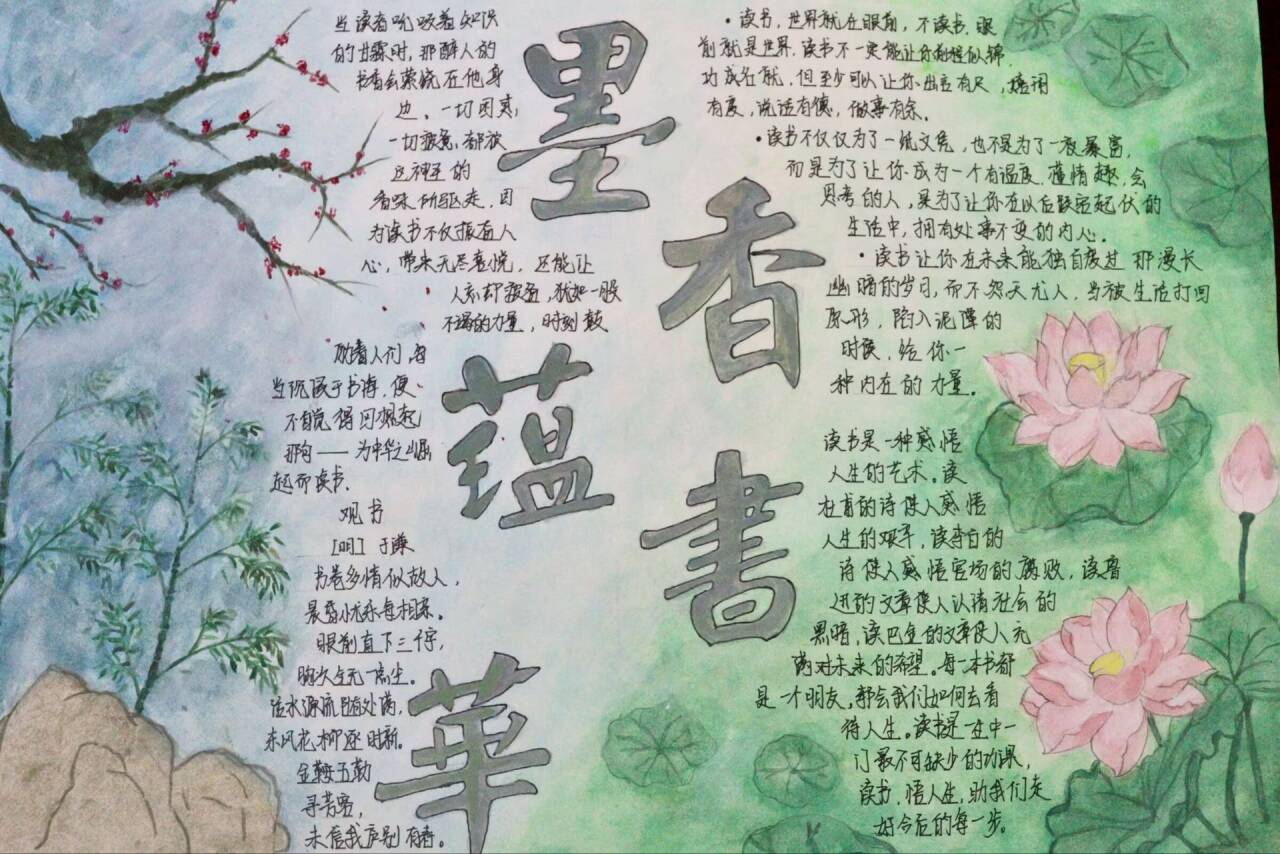 墨香蕴書華
当读者吮吸着知识
的甘露时，那醉人的
书香会萦绕在他身
边。一切困惑，
一切疲惫，都被
这神圣的
香味所驱走，因
为读书不仅振奋人
心，带来无尽喜悦，还能让
人忘却疲惫，犹如一股
不竭的力量，时刻鼓
励着人们，每
当沉浸于书海，便
不自觉得回想起
那句——为中华之崛
起而读书。
观书
[明]于谦
书卷多情似故人，
晨昏忧乐每相亲。
眼前直下三千字，
胸次全无一点尘。
活水源流随处满，
东风花柳逐时新。
金鞍玉勒
寻芳客，
未信我庐别有春。
·读书，世界就在眼前，不读书，眼
前就是世界。读书不一定能让你前程似锦，
功成名就，但至少可以让你出言有尺，嬉闹
有度，说话有德，做事有余。
·读书不仅仅为了一纸文凭，也不是为了一夜暴富，
而是为了让你成为一个有温度，懂情趣，会
思考的人，是为了让你在以后跌宕起伏的
生活中，拥有处事不变的内心。
·读书让你在未来能独自度过那漫长
幽暗的岁月，而不怨天尤人，当被生活打回
原形，陷入泥潭的
时候，给你一
种内在的力量。
读书是一种感悟
人生的艺术。读
杜甫的诗使人感悟
人生的艰辛，读李白的
诗使人感悟官场的腐败，读鲁
迅的文章使人认清社会的
黑暗，读巴金的文章使人充
满对未来的希望。每一本书都
是一个朋友，都会我们如何去看
待人生。读书是一生中一
门最不可缺少的功课，
读书，悟人生，助我们走
好今后的每一步。